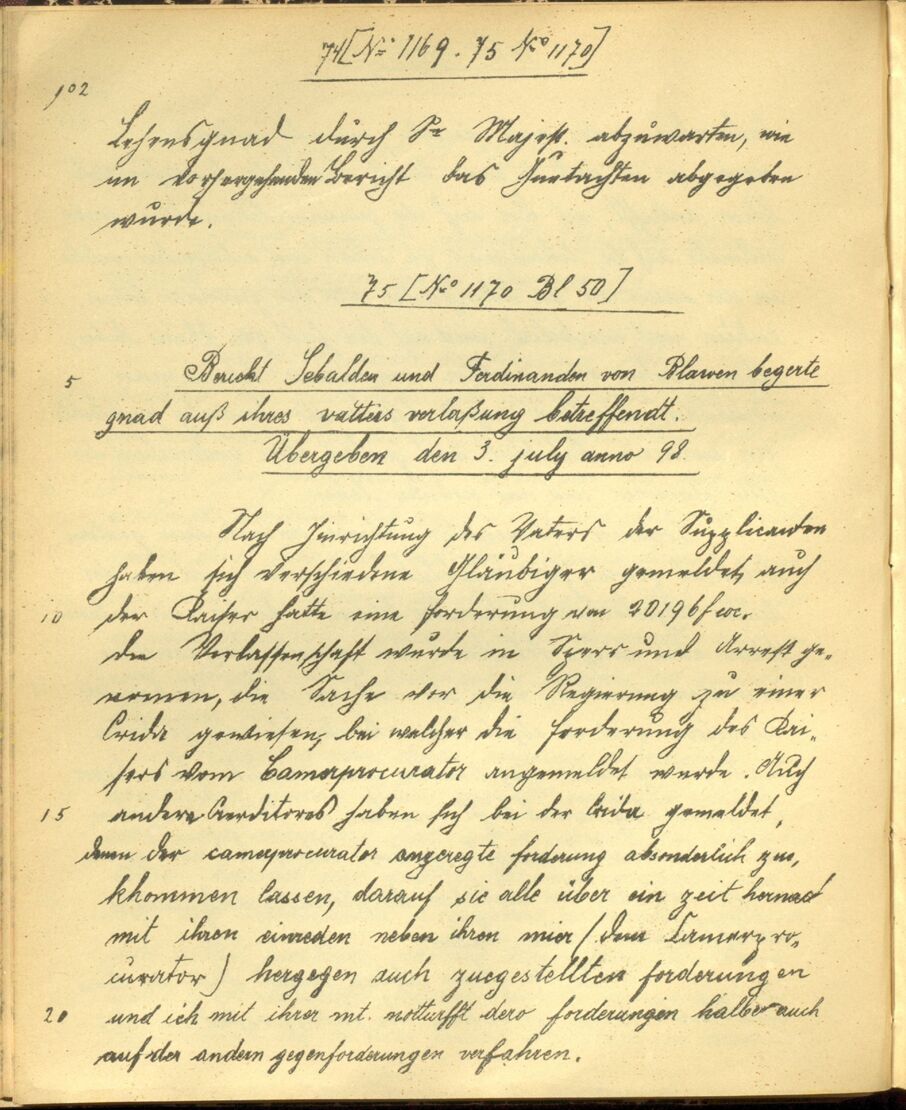 74 [No 1169. 75 No 1170]
102
Lehensgnad durch Sr Majest. abzuwarten, wie
im vorhergehenden Bericht das Guetachten abgegeben
wurde.
75 [No 1170 Bl 50]
5 Bericht Sebalden und Ferdinanden von Blawen begerte
gnad auß ihres vatters verlaßung betreffendt.
Übergeben den 3. july anno 98.
Nach Hinrichtung des Vaters der Supplicanten
haben sich verschiedene Gläubiger gemeldet, auch
10 der Kaiser hatte eine Forderung von 20196 f
die Verlassenschaft wurde in Spers und Arrest ge-
nomen, die Sache vor die Regierung zu einer
Crida gewiesen, bei welcher die Forderung des Kai-
sers vom Camerprocurator angemeldet wurde. Auch
15 andere Creditores haben sich bei der Crida gemeldet,
denen der camerprocurator angeregte forderung absonderlich zue-
khommen lassen, darauf sie alle über ein zeit hernach
mit ihren einreden neben ihren mier / dem Camerpro-
curator) hergegen auch zuegestellten forderungen
20 und ich mit ihrer mt. notturfft dero forderungen halber auch
auf der andern gegenforderungen verfahren.